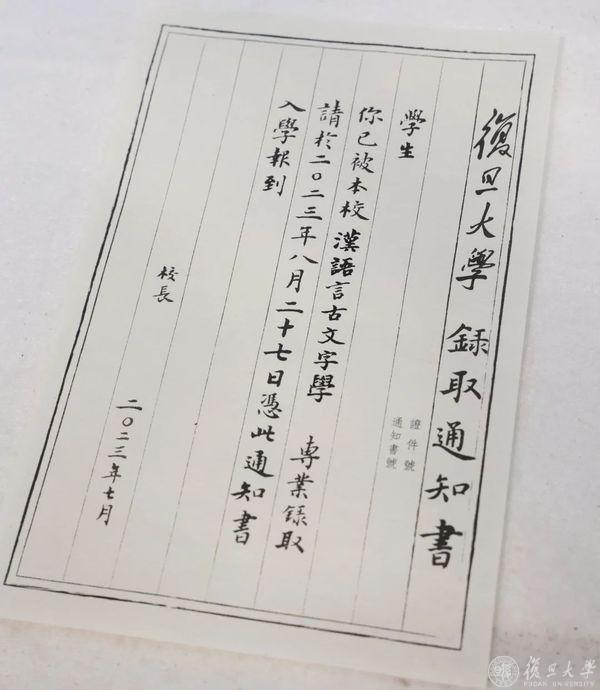 復旦大學 錄取通知書
證件號
通知書號
學生
你已被本校 漢語言古文字學 專業錄取
請於二〇二三年八月二十七日憑此通知書
入學報到
校長
二〇二三年七月
復旦大學
FUDAN UNIVERSITY